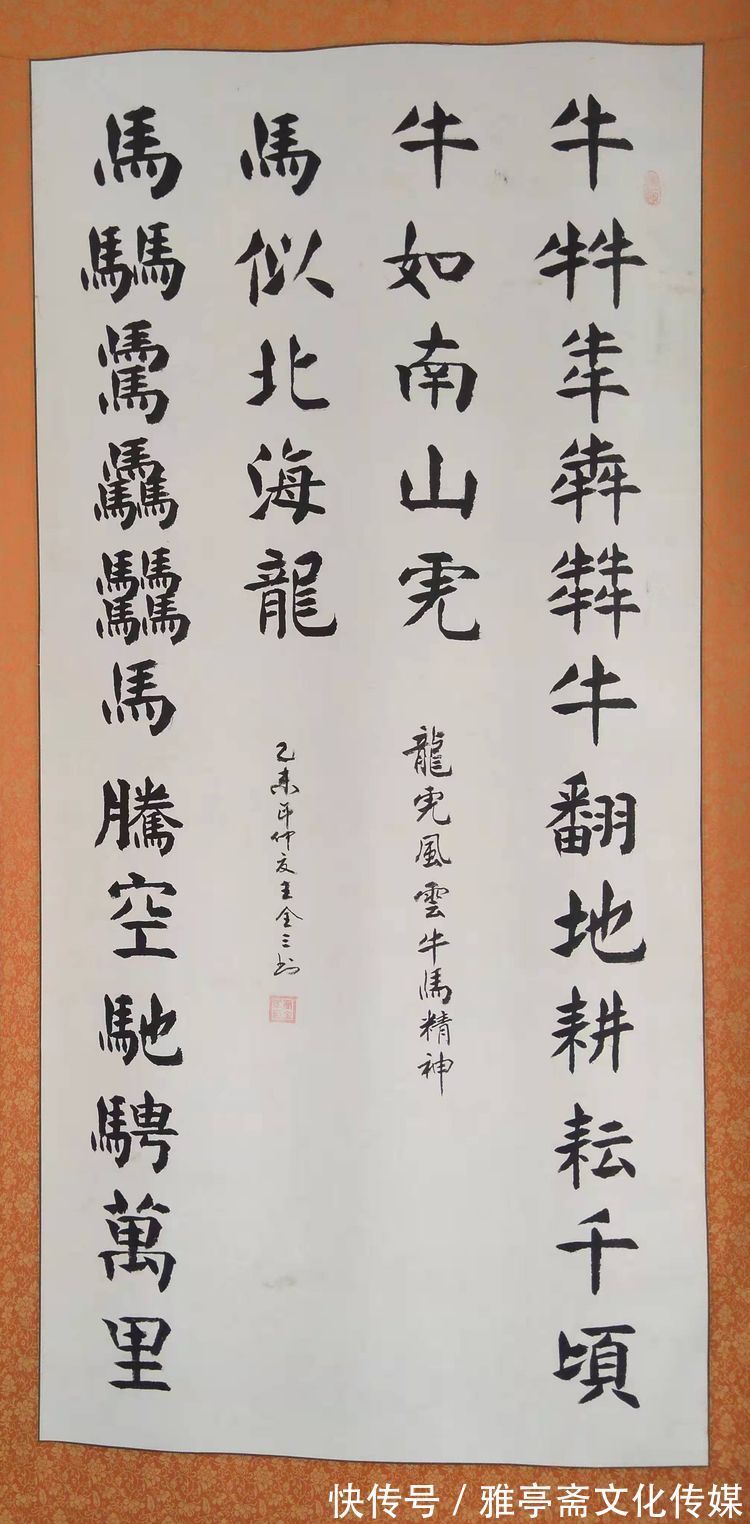 牛牪犇牛翻地耕耘千頃
牛如南山虎
龍虎風雲牛馬精神
馬似北海龍
乙未年仲夏王金三书
馬騳驫馬騰空馳騁萬里
快传号/雅亭斋文化传媒